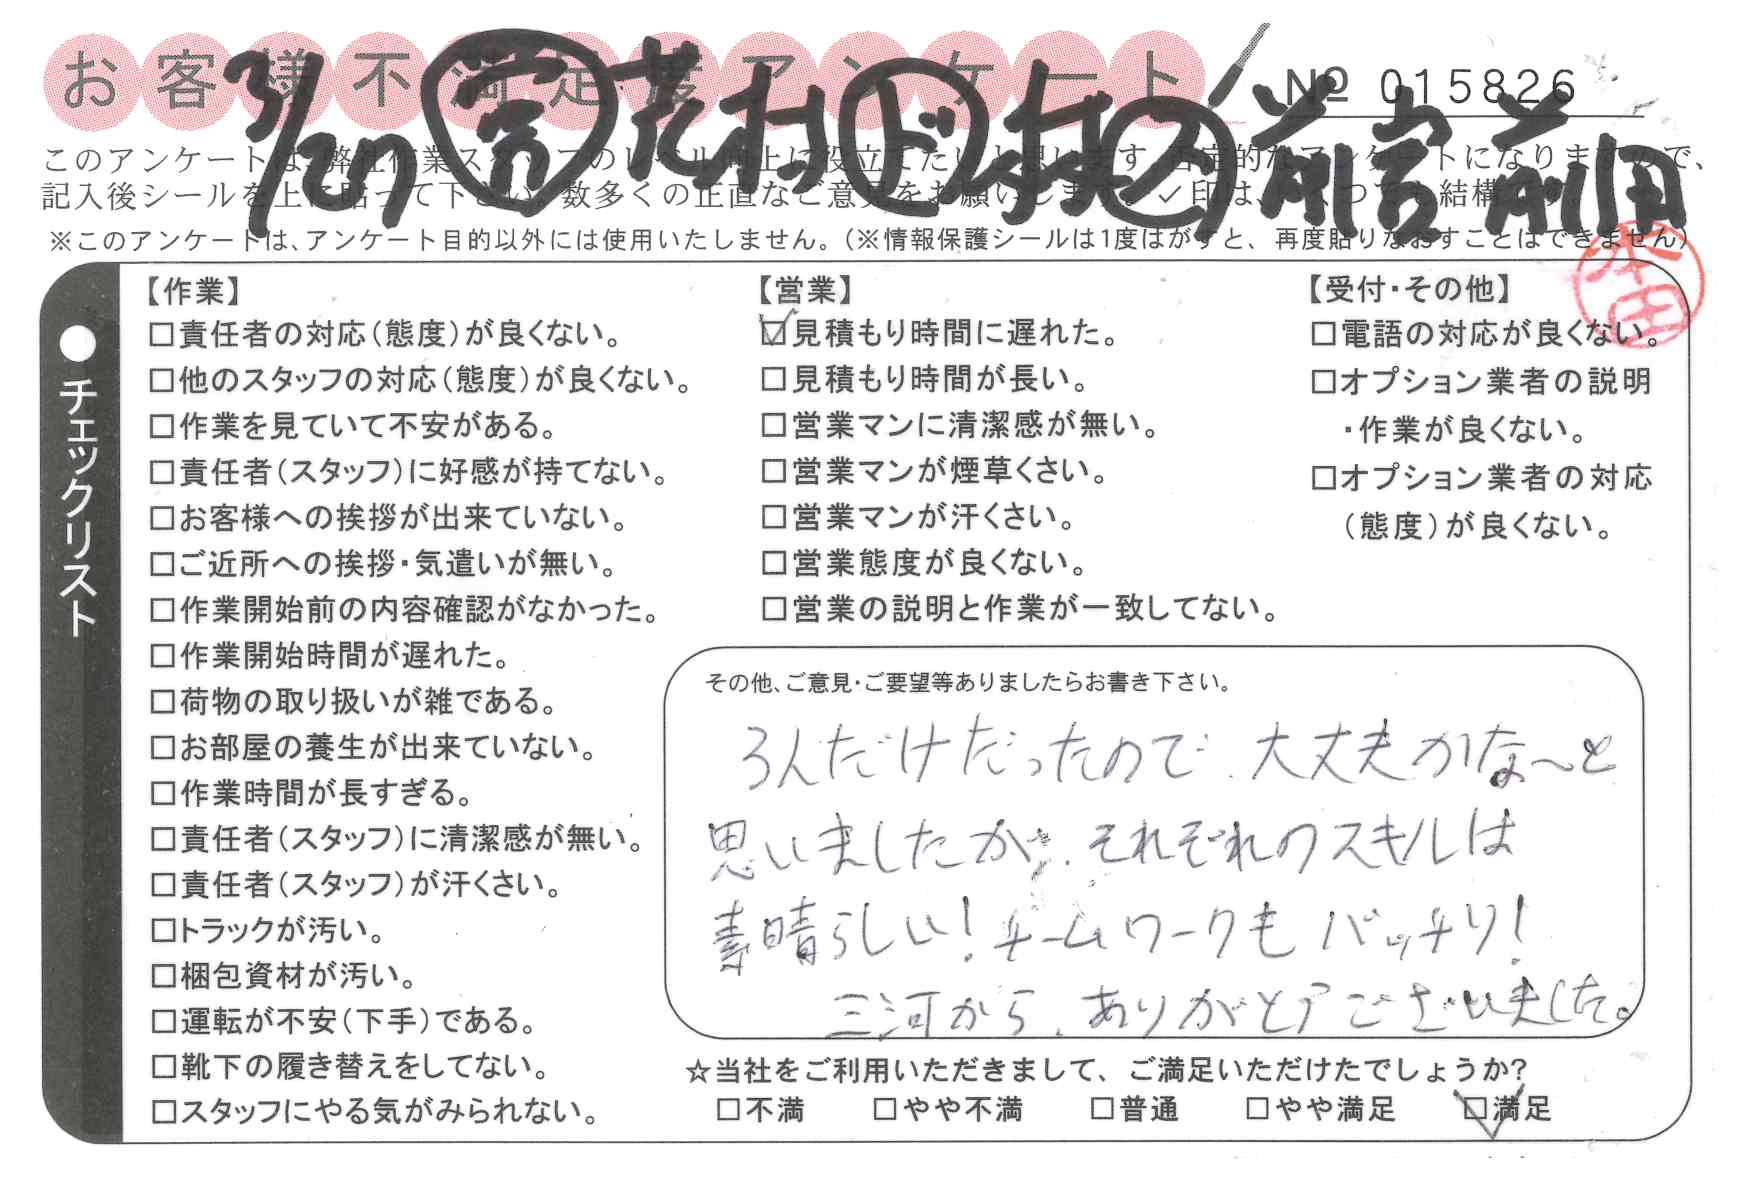 お客様不満足度アンケート
№ 015826
3/27 営 荒木 ド 木村 2 前宮 前田
このアンケートは、弊社作業スタッフのレベル向上に役立てたいと思います。否定的なアンケートになりますので、
記入後シールを上に貼って下さい。数多くの正直なご意見をお願いします。✓印は、いくつでも結構です。
※このアンケートは、アンケート目的以外には使用いたしません。(※情報保護シールは1度はがすと、再度貼りなおすことはできません)
本田
●チェックリスト
【作業】
□責任者の対応(態度)が良くない。
□他のスタッフの対応(態度)が良くない。
□作業を見ていて不安がある。
□責任者(スタッフ)に好感が持てない。
□お客様への挨拶が出来ていない。
□ご近所への挨拶・気遣いが無い。
□作業開始前の内容確認がなかった。
□作業開始時間が遅れた。
□荷物の取り扱いが雑である。
□お部屋の養生が出来ていない。
□作業時間が長すぎる。
□責任者(スタッフ)に清潔感が無い。
□責任者(スタッフ)が汗くさい。
□トラックが汚い。
□梱包資材が汚い。
□運転が不安(下手)である。
□靴下の履き替えをしてない。
□スタッフにやる気がみられない。
【営業】
☑見積もり時間に遅れた。
□見積もり時間が長い。
□営業マンに清潔感が無い。
□営業マンが煙草くさい。
□営業マンが汗くさい。
□営業態度が良くない。
□営業の説明と作業が一致してない。
【受付・その他】
□電語の対応が良くない。
□オプション業者の説明
・作業が良くない。
□オプション業者の対応
(態度)が良くない。
その他、ご意見・ご要望等ありましたらお書き下さい。
3人だけだったので、大丈夫かな〜と
思いましたが、それぞれのスキルは
素晴らしい!チームワークもバッチリ!
三河から、ありがとうございました。
☆当社をご利用いただきまして、ご満足いただけたでしょうか?
□不満 □やや不満 □普通 □やや満足 ☑満足